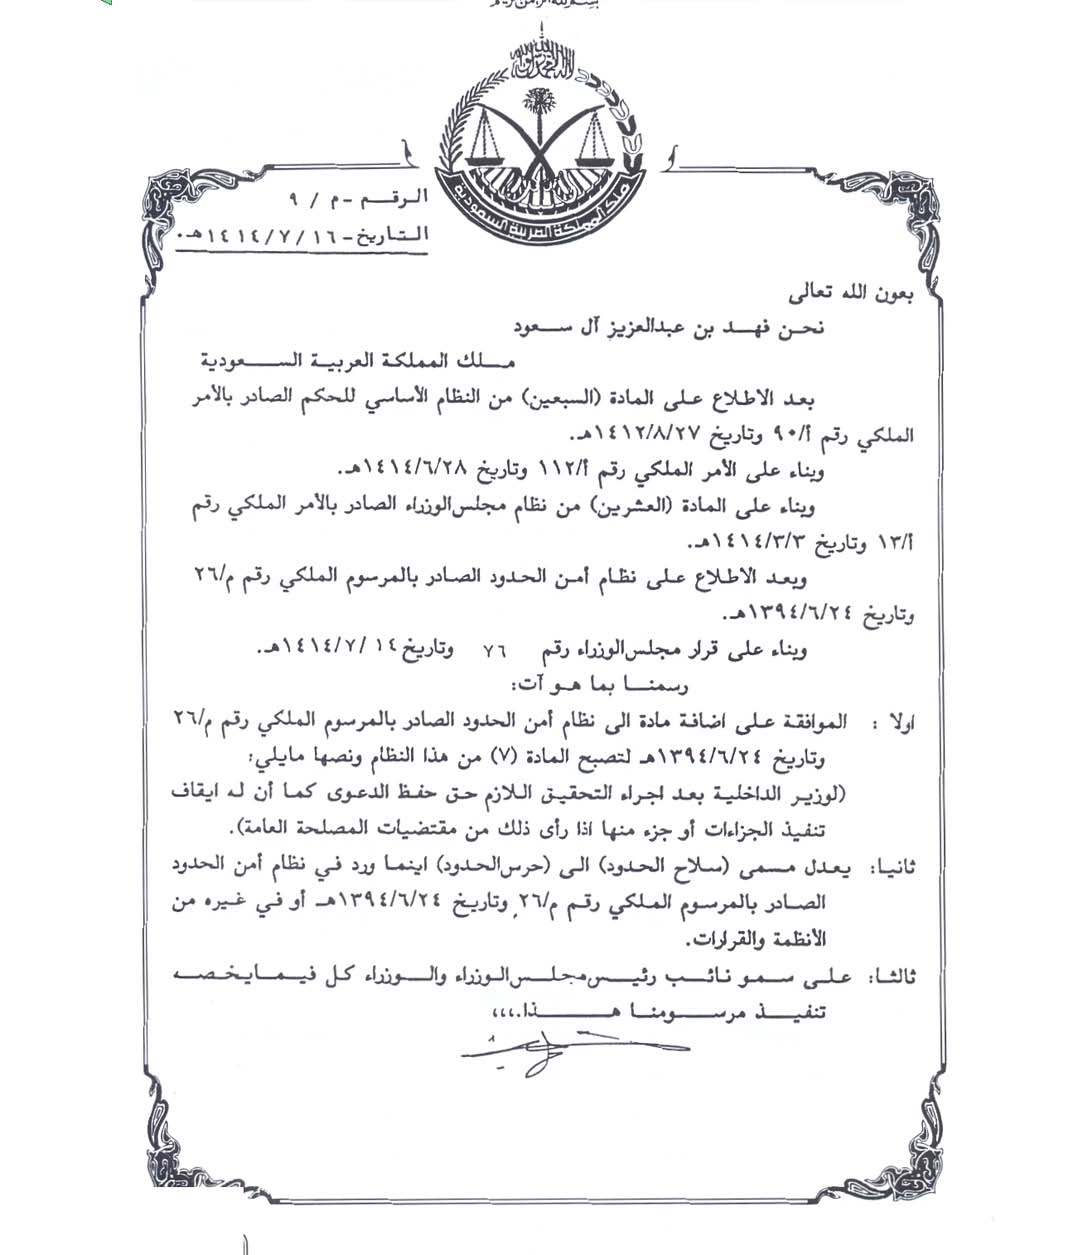 بسم الله الرحمن الرحيم
لا إله إلا الله محمد رسول الله
ملك المملكة العربية السعودية
الرقـــم - م / ٩
التـاريخ - ١٤١٤/٧/١٦هـ.
بعون الله تعالى
نحـن فهـد بن عبدالعزيز آل سـعود
مـلك المملكة العربية الســعودية
بعـد الاطـلاع عـلى المادة (السبعين) من النظام الأساسي للحكم الصادر بالأمر
الملكي رقم أ/٩٠ وتاريخ ١٤١٢/٨/٢٧هـ.
وبناء على الأمر الملكي رقم أ/١١٢ وتاريخ ١٤١٤/٦/٢٨هـ.
وبناء على المادة (العشرين) من نظام مجلس الوزراء الصادر بالأمر الملكي رقم
أ/١٣ وتاريخ ١٤١٤/٣/٣هـ.
وبعد الاطلاع على نظام أمن الحدود الصادر بالمرسوم الملكي رقم م/٢٦
وتاريخ ١٣٩٤/٦/٢٤هـ.
وبناء على قرار مجلس الوزراء رقم ٧٦ وتاريخ ١٤١٤/٧/١٤هـ.
رسمنـا بما هـو آت:
اولا : الموافقة على اضافة مادة الى نظام أمن الحدود الصادر بالمرسوم الملكي رقم م/٢٦
وتاريخ ١٣٩٤/٦/٢٤هـ لتصبح المادة (٧) من هذا النظام ونصها مايلي:
(لوزير الداخلية بعد اجراء التحقيق اللازم حق حفظ الدعوى كما أن له ايقاف
تنفيذ الجزاءات أو جزء منها اذا رأى ذلك من مقتضيات المصلحة العامة).
ثانيا: يعدل مسمى (سلاح الحدود) الى (حرس الحدود) اينما ورد في نظام أمن الحدود
الصادر بالمرسوم الملكي رقم م/٢٦ وتاريخ ١٣٩٤/٦/٢٤هـ أو في غيره من
الأنظمة والقرارات.
ثالثا: على سمو نائب رئيس مجلس الوزراء والوزراء كل فيما يخصه
تنفيــذ مرســومنـا هــــذا.،،،